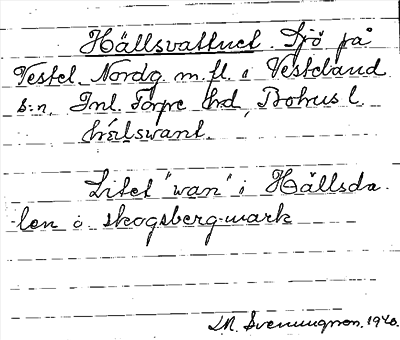 Hällsvattnet. Sjö på
Vestel. Nordg. m. fl. i Vesteland
s:n, Inl. Torpe hd, Bohus l.
hä́lswant.
Litet "wan" i Hällsda-
len å skogsberg-mark
1940.